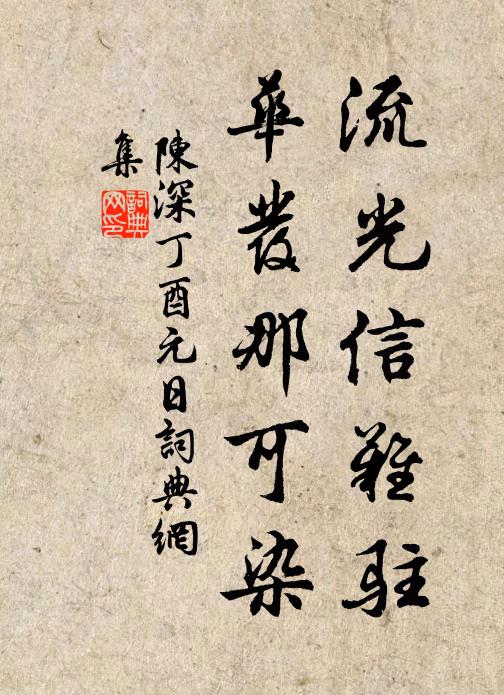 流光信難駐
華發那可染
陳深丁酉元日詞典網
集
詞典
网印